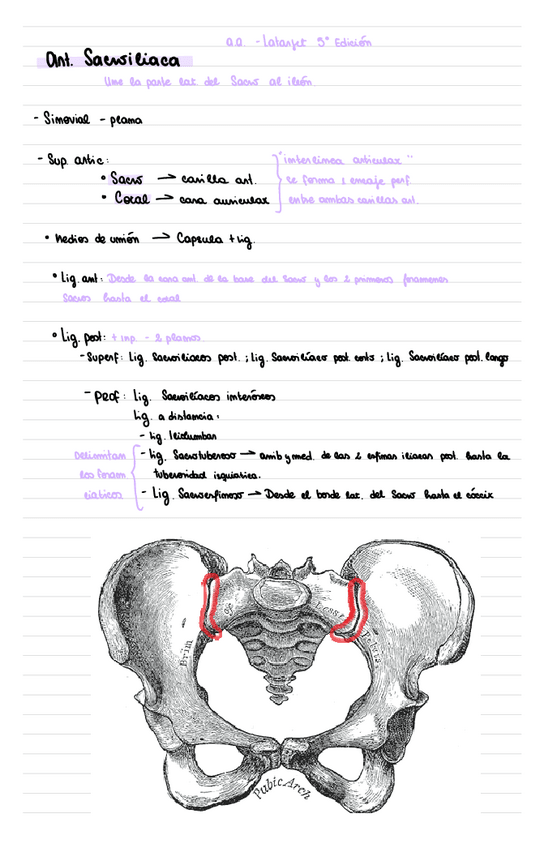 a.a. - Latarjet 5ª Edición
Art. Sacroiliaca
Une la parte lat. del Sacro al ileón.
- Sinovial - plana
- Sup. artic:
• Sacro → carilla art.
• Coxal → cara auricular
"interlínea articular"
se forma x encaje perf.
entre ambas carillas art.
• Medios de unión → Capsula + lig.
• Lig. ant: Desde la cara ant. de la base del Sacro y los 2 primeros foramenes
Sacros hasta el coxal
• Lig. post: + imp. - 2 planos
- Superf: Lig. Sacroiliacos post. ; lig. Sacroiliaco post. corto ; lig. Sacroiliaco post. largo
- Prof: Lig. Sacroilíacos interóseos
Lig. a distancia:
- Lig. Iliolumbar
- lig. Sacrotuberoso → amb y med. de las 2 espinas iliacas post. hasta la
tuberosidad isquiatica.
- Lig. Sacroespinoso → Desde el borde lat. del Sacro hasta el cóccix
Delimitan
los foram.
ciaticos
Brim
of
Lesser
Pelvis
Pubic Arch